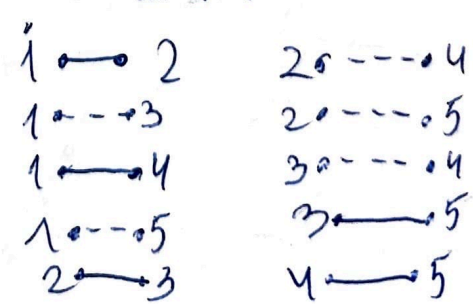 1 •——• 2
1 •- - -• 3
1 •——• 4
1 •- - -• 5
2 •——• 3
2 •- - -• 4
2 •- - -• 5
3 •- - -• 4
3 •——• 5
4 •——• 5